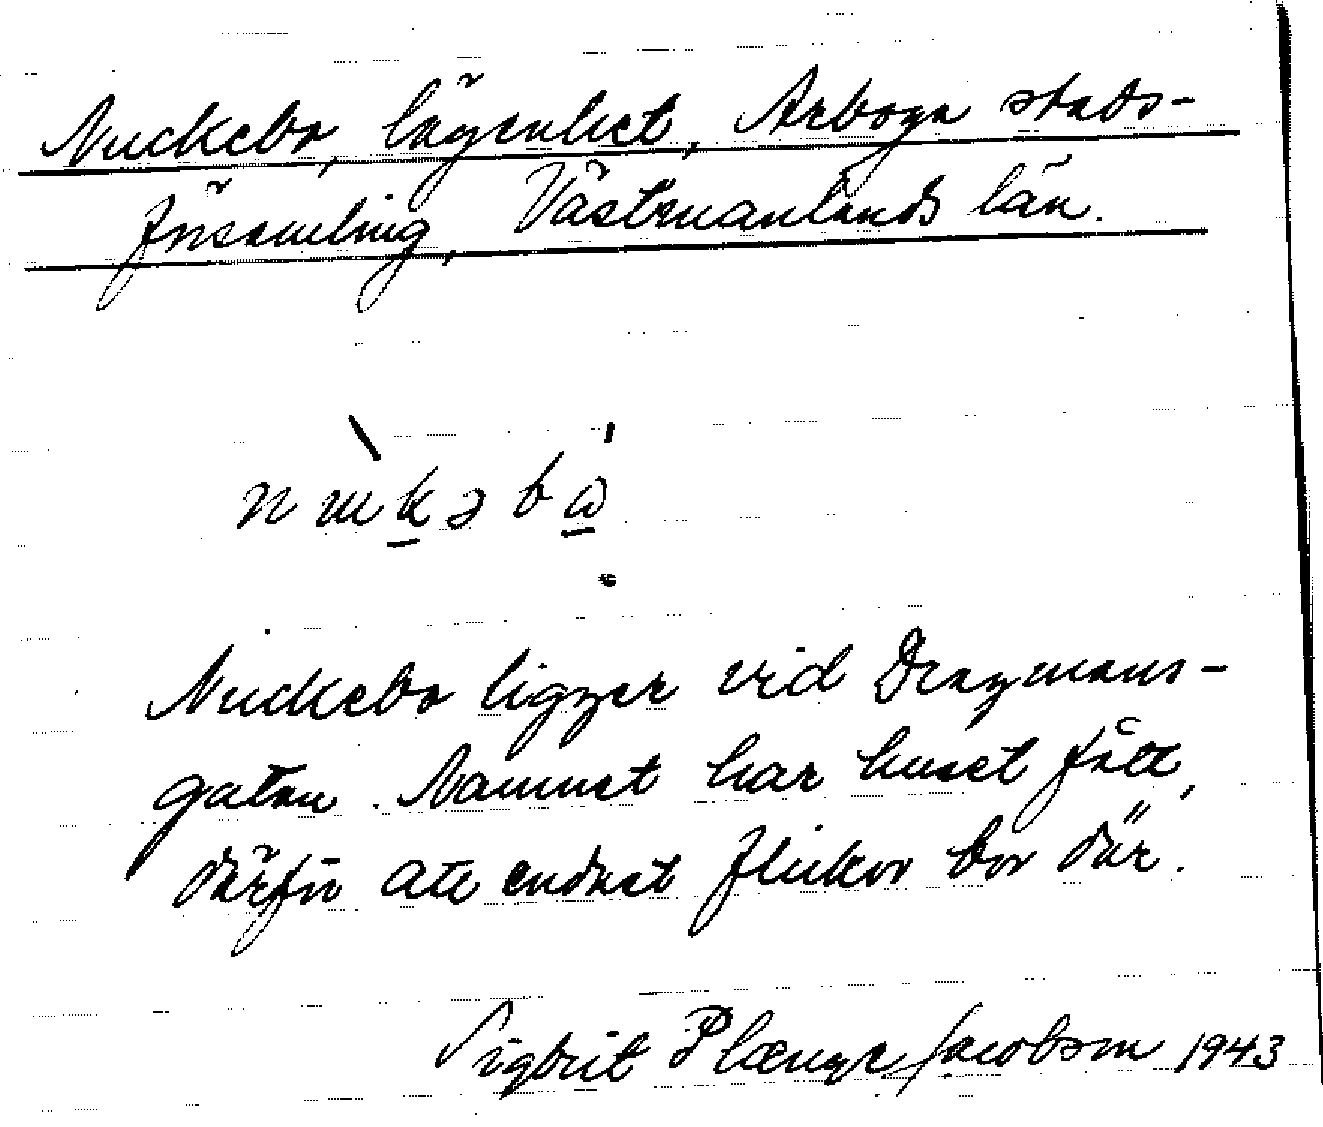 Nuckebo, lägenhet, Arboga stads-
församling, Västmanlands län.
Nuckebo ligger vid Dragmans-
gatan. Namnet har huset fått,
därför att endast flickor bor där.
Sigbrit Plænge Jacobson 1943